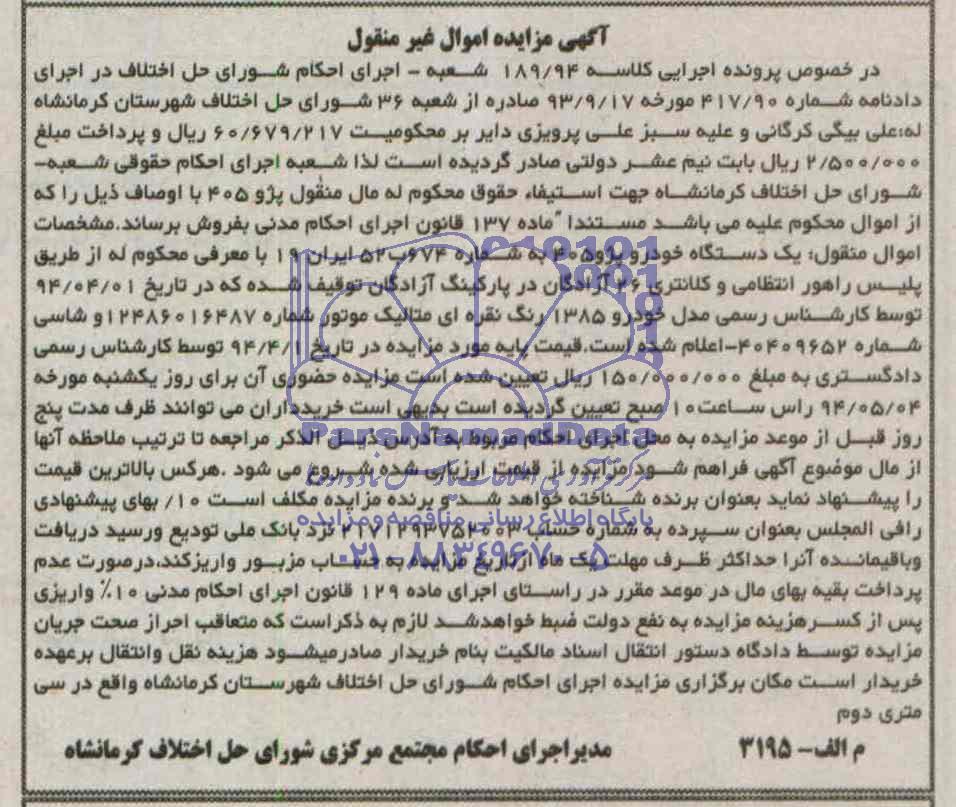 آگهی مزایده اموال غیر منقول
در خصوص پرونده اجرایی کلاسه ۱۸۹/۹۴ شعبه - اجرای احکام شورای حل اختلاف در اجرای
دادنامه شماره ۴۱۷/۹۰ مورخه ۹۳/۹/۱۷ صادره از شعبه ۳۶ شورای حل اختلاف شهرستان کرمانشاه
له:علی بیگی کرگانی و علیه سبز علی پرویزی دایر بر محکومیت ۶۰/۶۷۹/۲۱۷ ریال و پرداخت مبلغ
۲/۵۰۰/۰۰۰ ریال بابت نیم عشر دولتی صادر گردیده است لذا شعبه اجرای احکام حقوقی شعبه-
شورای حل اختلاف کرمانشاه جهت استیفاء حقوق محکوم له مال منقول پژو ۴۰۵ با اوصاف ذیل را که
از اموال محکوم علیه می باشد مستندا ً ماده ۱۳۷ قانون اجرای احکام مدنی بفروش برساند.مشخصات
اموال منقول: یک دستگاه خودرو پژو۴۰۵ به شماره ۶۷۴ب۵۲ ایران ۱۹ با معرفی محکوم له از طریق
پلیس راهور انتظامی و کلانتری ۲۶ آزادگان در پارکینگ آزادگان توقیف شده که در تاریخ ۹۴/۰۴/۰۱
توسط کارشناس رسمی مدل خودرو ۱۳۸۵ رنگ نقره ای متالیک موتور شماره ۱۲۴۸۶۰۱۶۴۸۷و شاسی
شماره ۴۰۴۰۹۶۵۲-اعلام شده است.قیمت پایه مورد مزایده در تاریخ ۹۴/۴/۱ توسط کارشناس رسمی
دادگستری به مبلغ ۱۵۰/۰۰۰/۰۰۰ ریال تعیین شده است مزایده حضوری آن برای روز یکشنبه مورخه
۹۴/۰۵/۰۴ راس ساعت۱۰ صبح تعیین گردیده است بدیهی است خریدداران می توانند ظرف مدت پنج
روز قبل از موعد مزایده به محل اجرای احکام مربوط به آدرس ذیل الذکر مراجعه تا ترتیب ملاحظه آنها
از مال موضوع آگهی فراهم شود مزایده از قیمت ارزیابی شده شروع می شود .هرکس بالاترین قیمت
را پیشنهاد نماید بعنوان برنده شناخته خواهد شد و برنده مزایده مکلف است ۱۰/ بهای پیشنهادی
رافی المجلس بعنوان سپرده به شماره حساب ۲۱۷۱۲۹۳۷۵۲۰۰۳ نزد بانک ملی تودیع ورسید دریافت
وباقیمانده آنرا حداکثر ظرف مهلت یک ماه ازتاریخ مزایده به حساب مزبور واریزکند،درصورت عدم
پرداخت بقیه بهای مال در موعد مقرر در راستای اجرای ماده ۱۲۹ قانون اجرای احکام مدنی ۱۰٪ واریزی
پس از کسرهزینه مزایده به نفع دولت ضبط خواهدشد لازم به ذکراست که متعاقب احراز صحت جریان
مزایده توسط دادگاه دستور انتقال اسناد مالکیت بنام خریدار صادرمیشود هزینه نقل وانتقال برعهده
خریدار است مکان برگزاری مزایده اجرای احکام شورای حل اختلاف شهرستان کرمانشاه واقع در سی
متری دوم
م الف- ۳۱۹۵ مدیراجرای احکام مجتمع مرکزی شورای حل اختلاف کرمانشاه
ParsNamadData
پایگاه اطلاع رسانی مناقصه و مزایده
۰۲۱-۸۸۳۴۹۶۷۰-۵